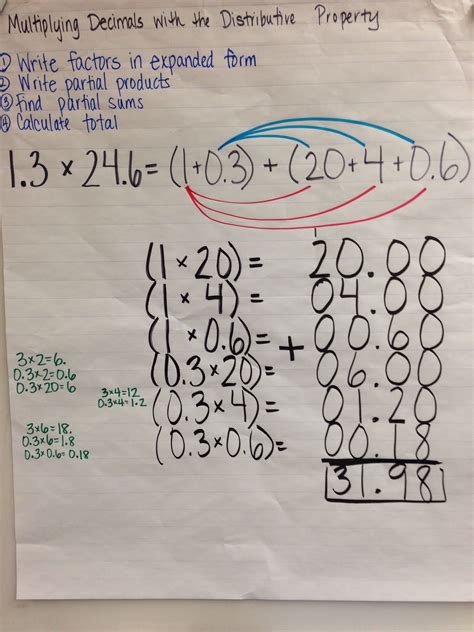 Multiplying Decimals with the Distributive Property
① Write factors in expanded form
② Write partial products
③ Find partial sums
④ Calculate total
1.3 × 24.6 = (1+0.3) + (20+4+0.6)
1
(1 × 20) = 20.00
(1 × 4) = 04.00
(1 × 0.6) = + 00.60
(0.3 × 20) = 06.00
(0.3 × 4) = 01.20
(0.3 × 0.6) = 00.18
31.98
3×2=6.
0.3×2=0.6
0.3×20=6
3×4=12
0.3×4=1.2
3×6=18.
0.3×6=1.8
0.3×0.6=0.18